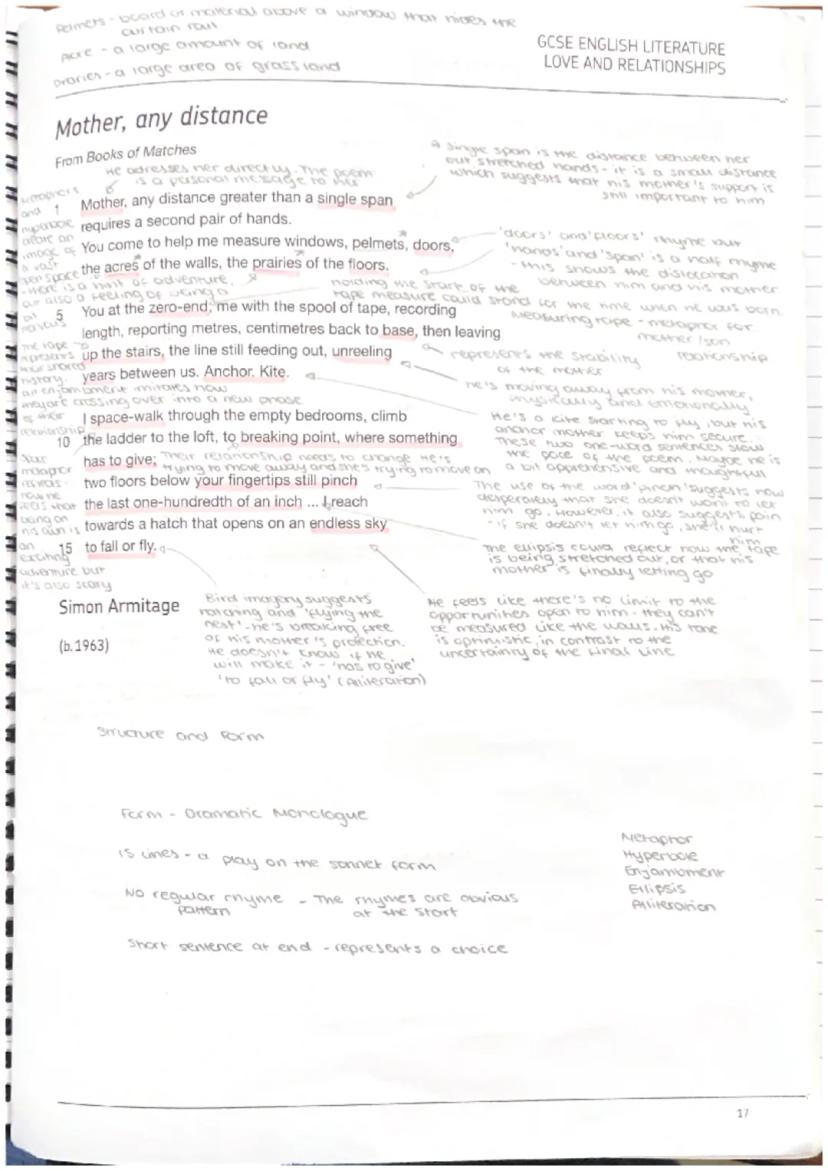 Pelmets - board or material above a window that hides the
curtain rail
Acre - a large amount of land
Prairies - a large area of grassland
GCSE ENGLISH LITERATURE
LOVE AND RELATIONSHIPS
Mother, any distance
From Books of Matches
He adresses her directly. The poem
is a personal message to her
A single span is the distance between her
out stretched hands - it is a small distance
which suggests that his mother's support is
still important to him
1 Mother, any distance greater than a single span
requires a second pair of hands.
You come to help me measure windows, pelmets, doors,
the acres of the walls, the prairies of the floors.
metaphors
and
hyperbole
create an
image of
a vast
open space
there is a hint of adventure,
but also a feeling of being a
bit
nervous
'doors' and 'floors' rhyme but
'hands' and 'span' is a half rhyme
- this shows the dislocation
between him and his mother
holding the start of the
tape measure could stand for the time when he was born
5 You at the zero-end, me with the spool of tape, recording
length, reporting metres, centimetres back to base, then leaving
up the stairs, the line still feeding out, unreeling
years between us. Anchor. Kite.
Measuring tape - metaphor for
mother/son
relationship
represents the stability
of the mother
the tape
represents
their shared
history.
an enjambment imitates how
they are crossing over into a new phase
of their
relationship
he's moving away from his mother,
physically and emotionally
I space-walk through the empty bedrooms, climb
10 the ladder to the loft, to breaking point, where something
has to give;
two floors below your fingertips still pinch
the last one-hundredth of an inch ... I reach
towards a hatch that opens on an endless sky
15 to fall or fly.
Their relationship needs to change. He's
trying to move away and she's trying to move on
He's a kite starting to fly, but his
anchor mother keeps him secure.
These two one-word sentences slow
the pace of the poem. Maybe he is
a bit apprehensive and thoughtful
metaphor
reveals
how he
feels that
being on
his own is
an
exciting
adventure but
it's also scary
The use of the word 'pinch' suggests how
desperately that she doesn't want to let
him go. However, it also suggests pain
- if she doesn't let him go, she'll hurt
him
The ellipsis could reflect how the tape
is being stretched out, or that his
mother is finally letting go
Simon Armitage
(b.1963)
Bird imagery suggests
hatching and 'flying the
nest'. He's breaking free
of his mother's protection.
He doesn't know if he
will make it - 'has to give'
'to fall or fly' (Alliteration)
He feels like there's no limit to the
opportunities open to him - they can't
be measured like the walls. His tone
is optimistic, in contrast to the
uncertainty of the final line
Structure and Form
Form - Dramatic Monologue
15 lines - a play on the sonnet form
No regular rhyme - The rhymes are obvious
pattern at the start
Short sentence at end - represents a choice
Metaphor
Hyperbole
Enjambment
Ellipsis
Alliteration
17